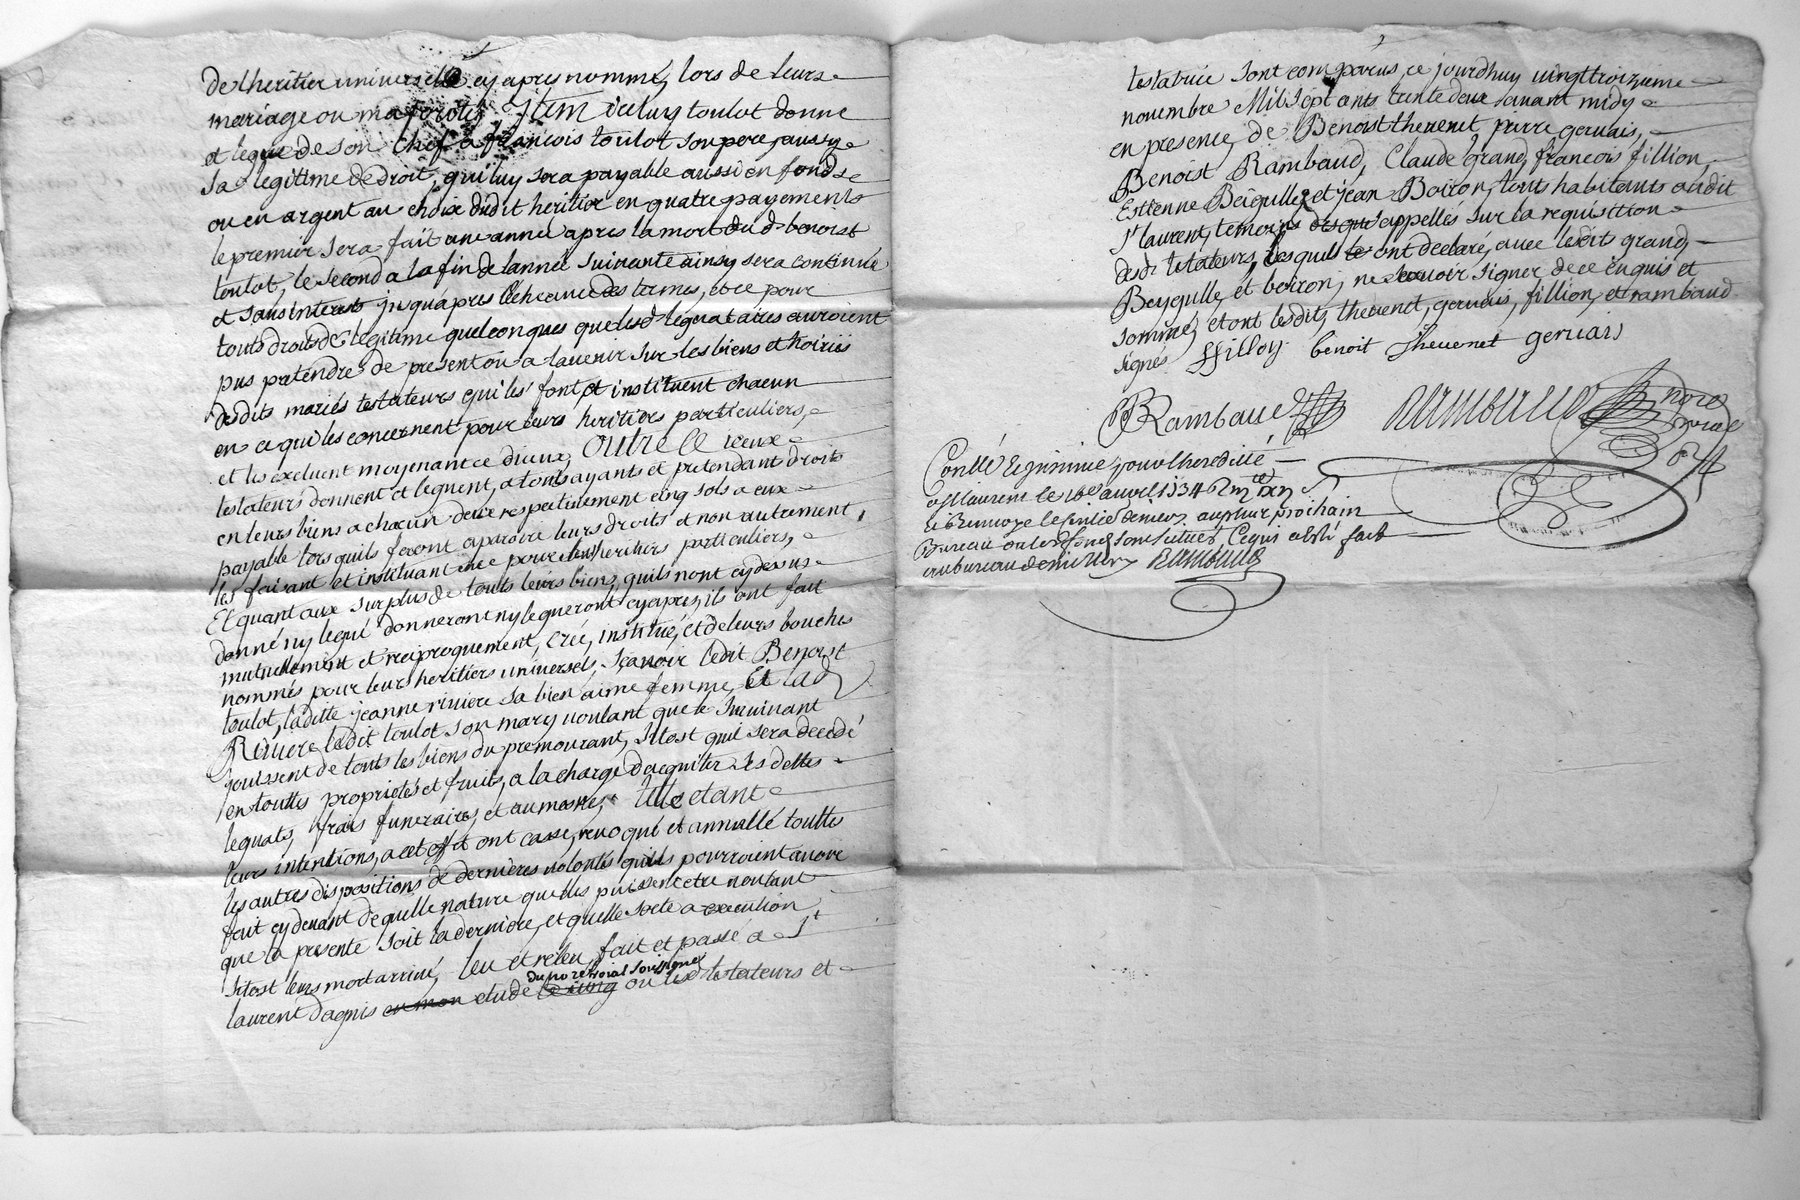 de lheritier universel cy apres nommé, lors de leurs
mariage ou majorités Item iceluy toulot donne
et legue de son chef a françois toulot son pere, aussy
sa legitime de droit, qui luy sera payable aussi en fond
ou en argent au choix dudit heritier en quatre payements
le premier sera fait une année apres la mort dud. benoist
toulot, le second a la fin de lannee suivante ainsy sera continué
et sans interest jusquapres lecheance des termes, et ce pour
touts droits de legitime quelconques que lesd. legataires auroient
pus pretendre de present ou a lavenir sur les biens et hoiries
desdits mariés testateurs qui les font et instituent chacun
en ce qui les concernent pour leurs heritiers particuliers,
et les excluent moyenant ce dieux, outre ce iceux
testateurs donnent et leguent, a touts ayants et pretendant droits
en leurs biens a chacun deux respectivement cinq sols a eux
payable lors quils feront aparoire leurs droits et non autrement,
les faisant et instituant ence pour leurs heritiers particuliers,
Et quant aux surplus de touts leurs biens, quils nont cy dessus
donné ny legué donneront ny legueront cy apres, ils ont fait
mutuellement et reciproquement, créé, institué, et de leurs bouches
nommés pour leurs heritiers universels, sçavoir ledit Benoist
toulot, laditte jeanne riviere sa bien aime femme, Et lad.
Riviere ledit toulot son mary voulant que le survivant
jouissent de touts les biens du premourant, sitost quil sera decedé
en touttes proprietés et fruits, a la charge dacquiter ses dettes
leguats, frais funeraires, et aumosnes, telle etant
leurs intentions, a cet effet ont casse, revoqué et annullé touttes
les autres dispositions de dernieres volontés quils pourroient avoir
fait cy devant de quelle nature quelles puissent etre voulant
que la presente soit la derniere, et quelle sorte a execution
sitost leurs mort arrivé, leu et releu, fait et passé a St
laurent dagnis en mon etude du no.re roial soussigné ou lesd. testateurs et
testatrice sont comparus, ce jourdhuy vingttroizieme
novembre Mil Sept cents trente deux avant midy
en presence de Benoist thevenet, pierre gervais,
Benoist Rambaud, Claude grand, francois fillion,
Estienne Beigulle, et jean Boiron, touts habitants audit
St laurent, temoins appellés sur la requisition
desd. testateurs, lesquels ont declaré, avec lesdits grand,
Beygulle, et boiron, ne scavoir signer de ce enquis et
sommé, et ont lesdits, thevenet, gervais, fillion, et rambaud
signes ffilloy benoit thevenet gervais
Rambaud Rambaud no.re roial
Conllé
a St laurent le 16e avril 1734
prochain
bureau fait
au bureau Rambaud